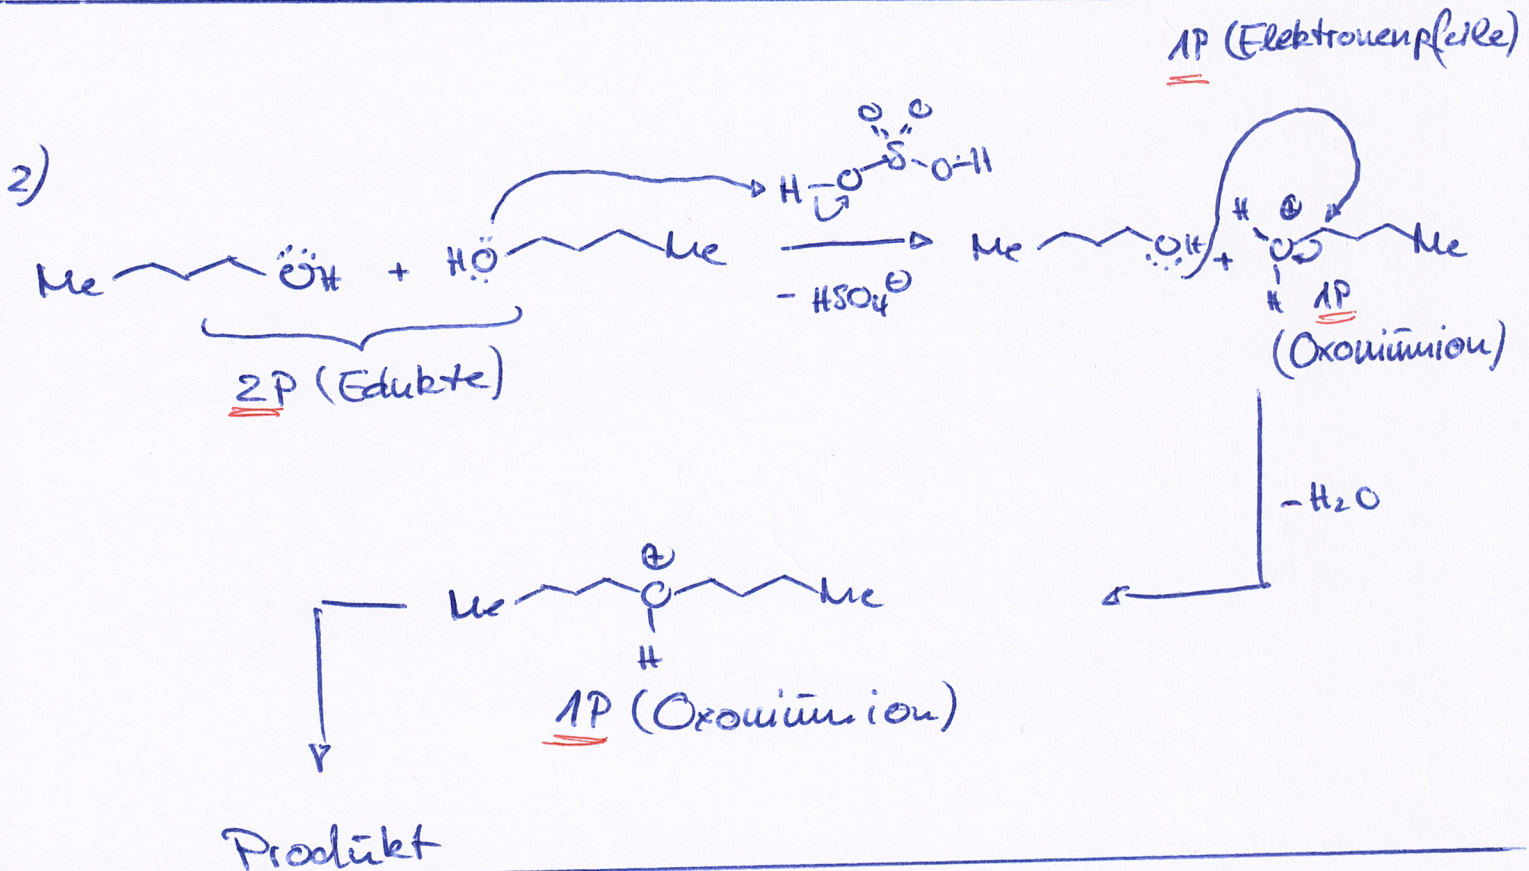 1P (Elektronenpfeile)
2)
Me OH + HO Me
H-O S O O O-H
- HSO4⊖
Me OH + H O ⊕ H Me
1P
(Oxoniūmion)
2P (Edukte)
- H2O
Me O ⊕ H Me
1P (Oxoniūmion)
Prodūkt